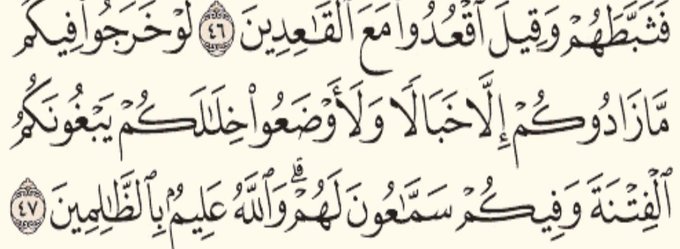 فَثَبَّطَهُمْ وَقِيلَ ٱقْعُدُواْ مَعَ ٱلْقَٰعِدِينَ ٤٦ لَوْ خَرَجُواْ فِيكُم
مَّا زَادُوكُمْ إِلَّا خَبَالًا وَلَأَوْضَعُواْ خِلَٰلَكُمْ يَبْغُونَكُمُ
ٱلْفِتْنَةَ وَفِيكُمْ سَمَّٰعُونَ لَهُمْۗ وَٱللَّهُ عَلِيمُۢ بِٱلظَّٰلِمِينَ ٤٧